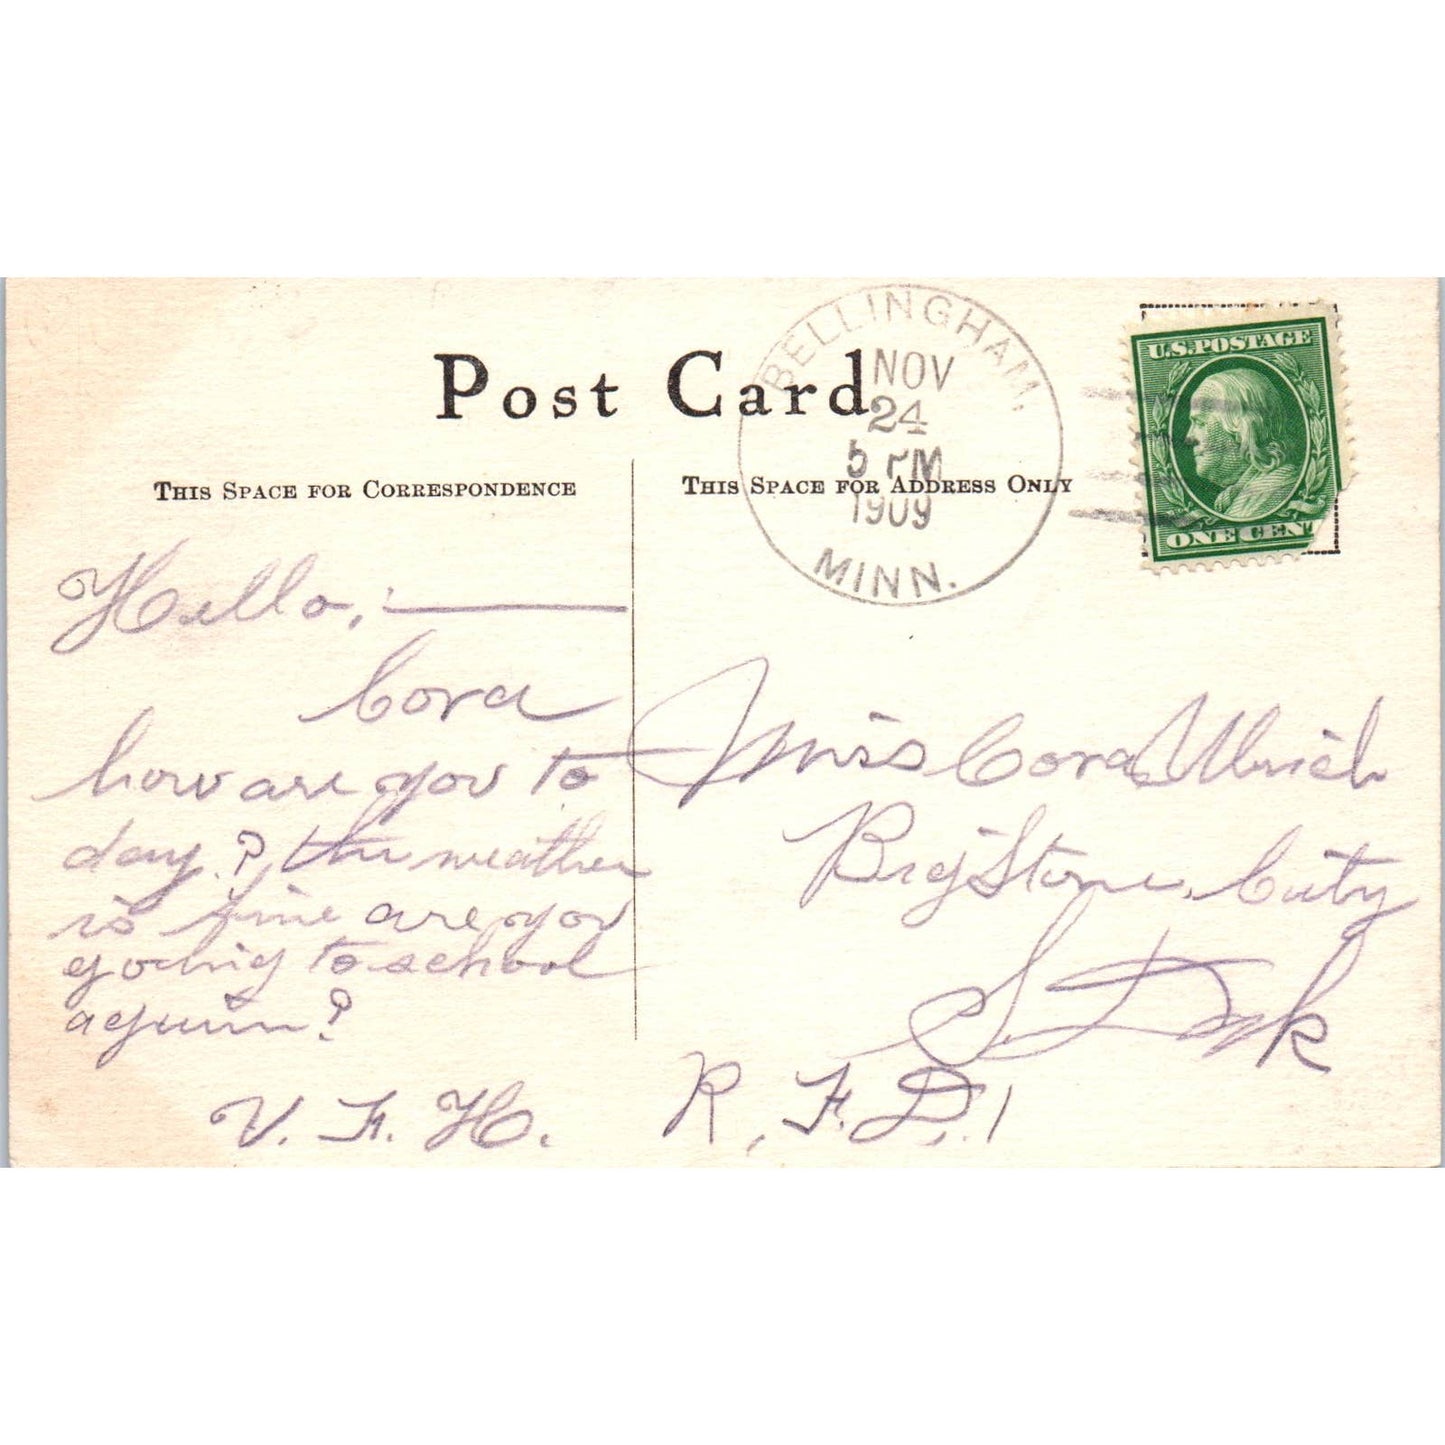 Post Card
BELLINGHAM,
NOV
24
5 PM
1909
MINN.
U.S.POSTAGE
ONE CENT
THIS SPACE FOR CORRESPONDENCE
THIS SPACE FOR ADDRESS ONLY
Hello, :
Cora
how are you to
day.? the weather
is fine are you
going to school
again?
V. F. H.
Miss Cora Ulrich
Big Stone, City
S. Dak
R, F. D, 1